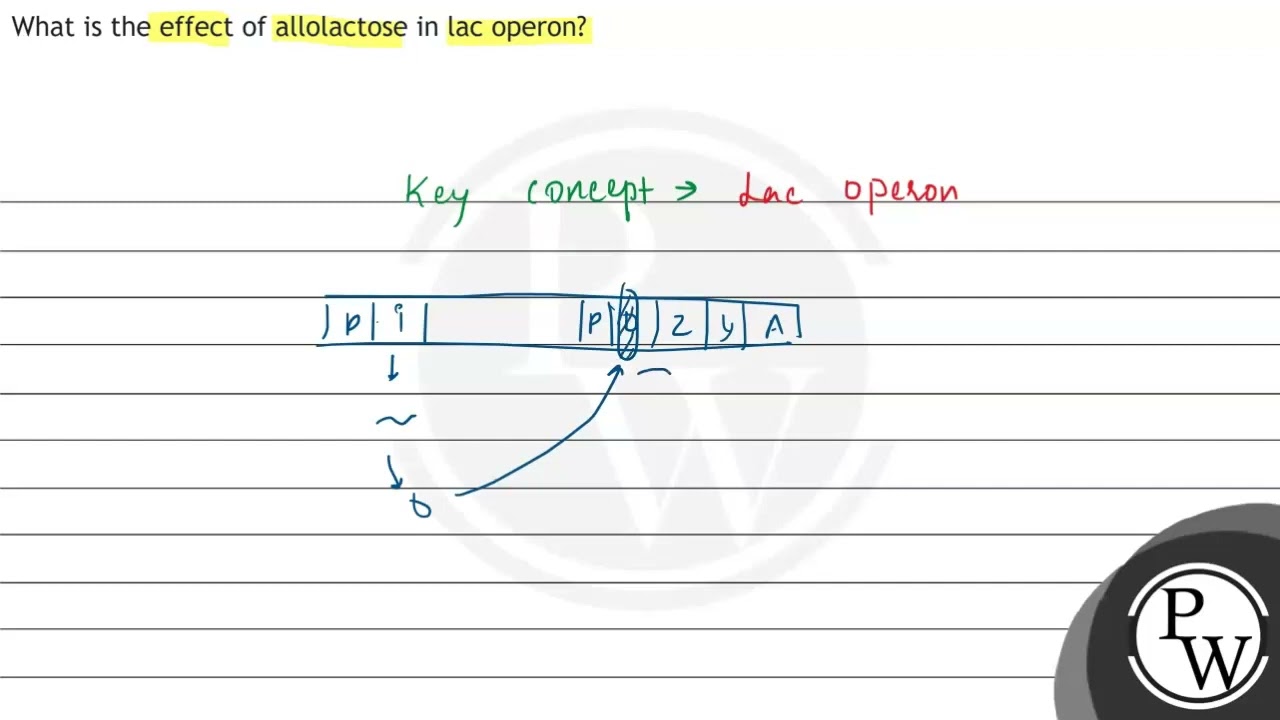 What is the effect of allolactose in lac operon?
Key concept → Lac operon
P i P O Z y A
PW